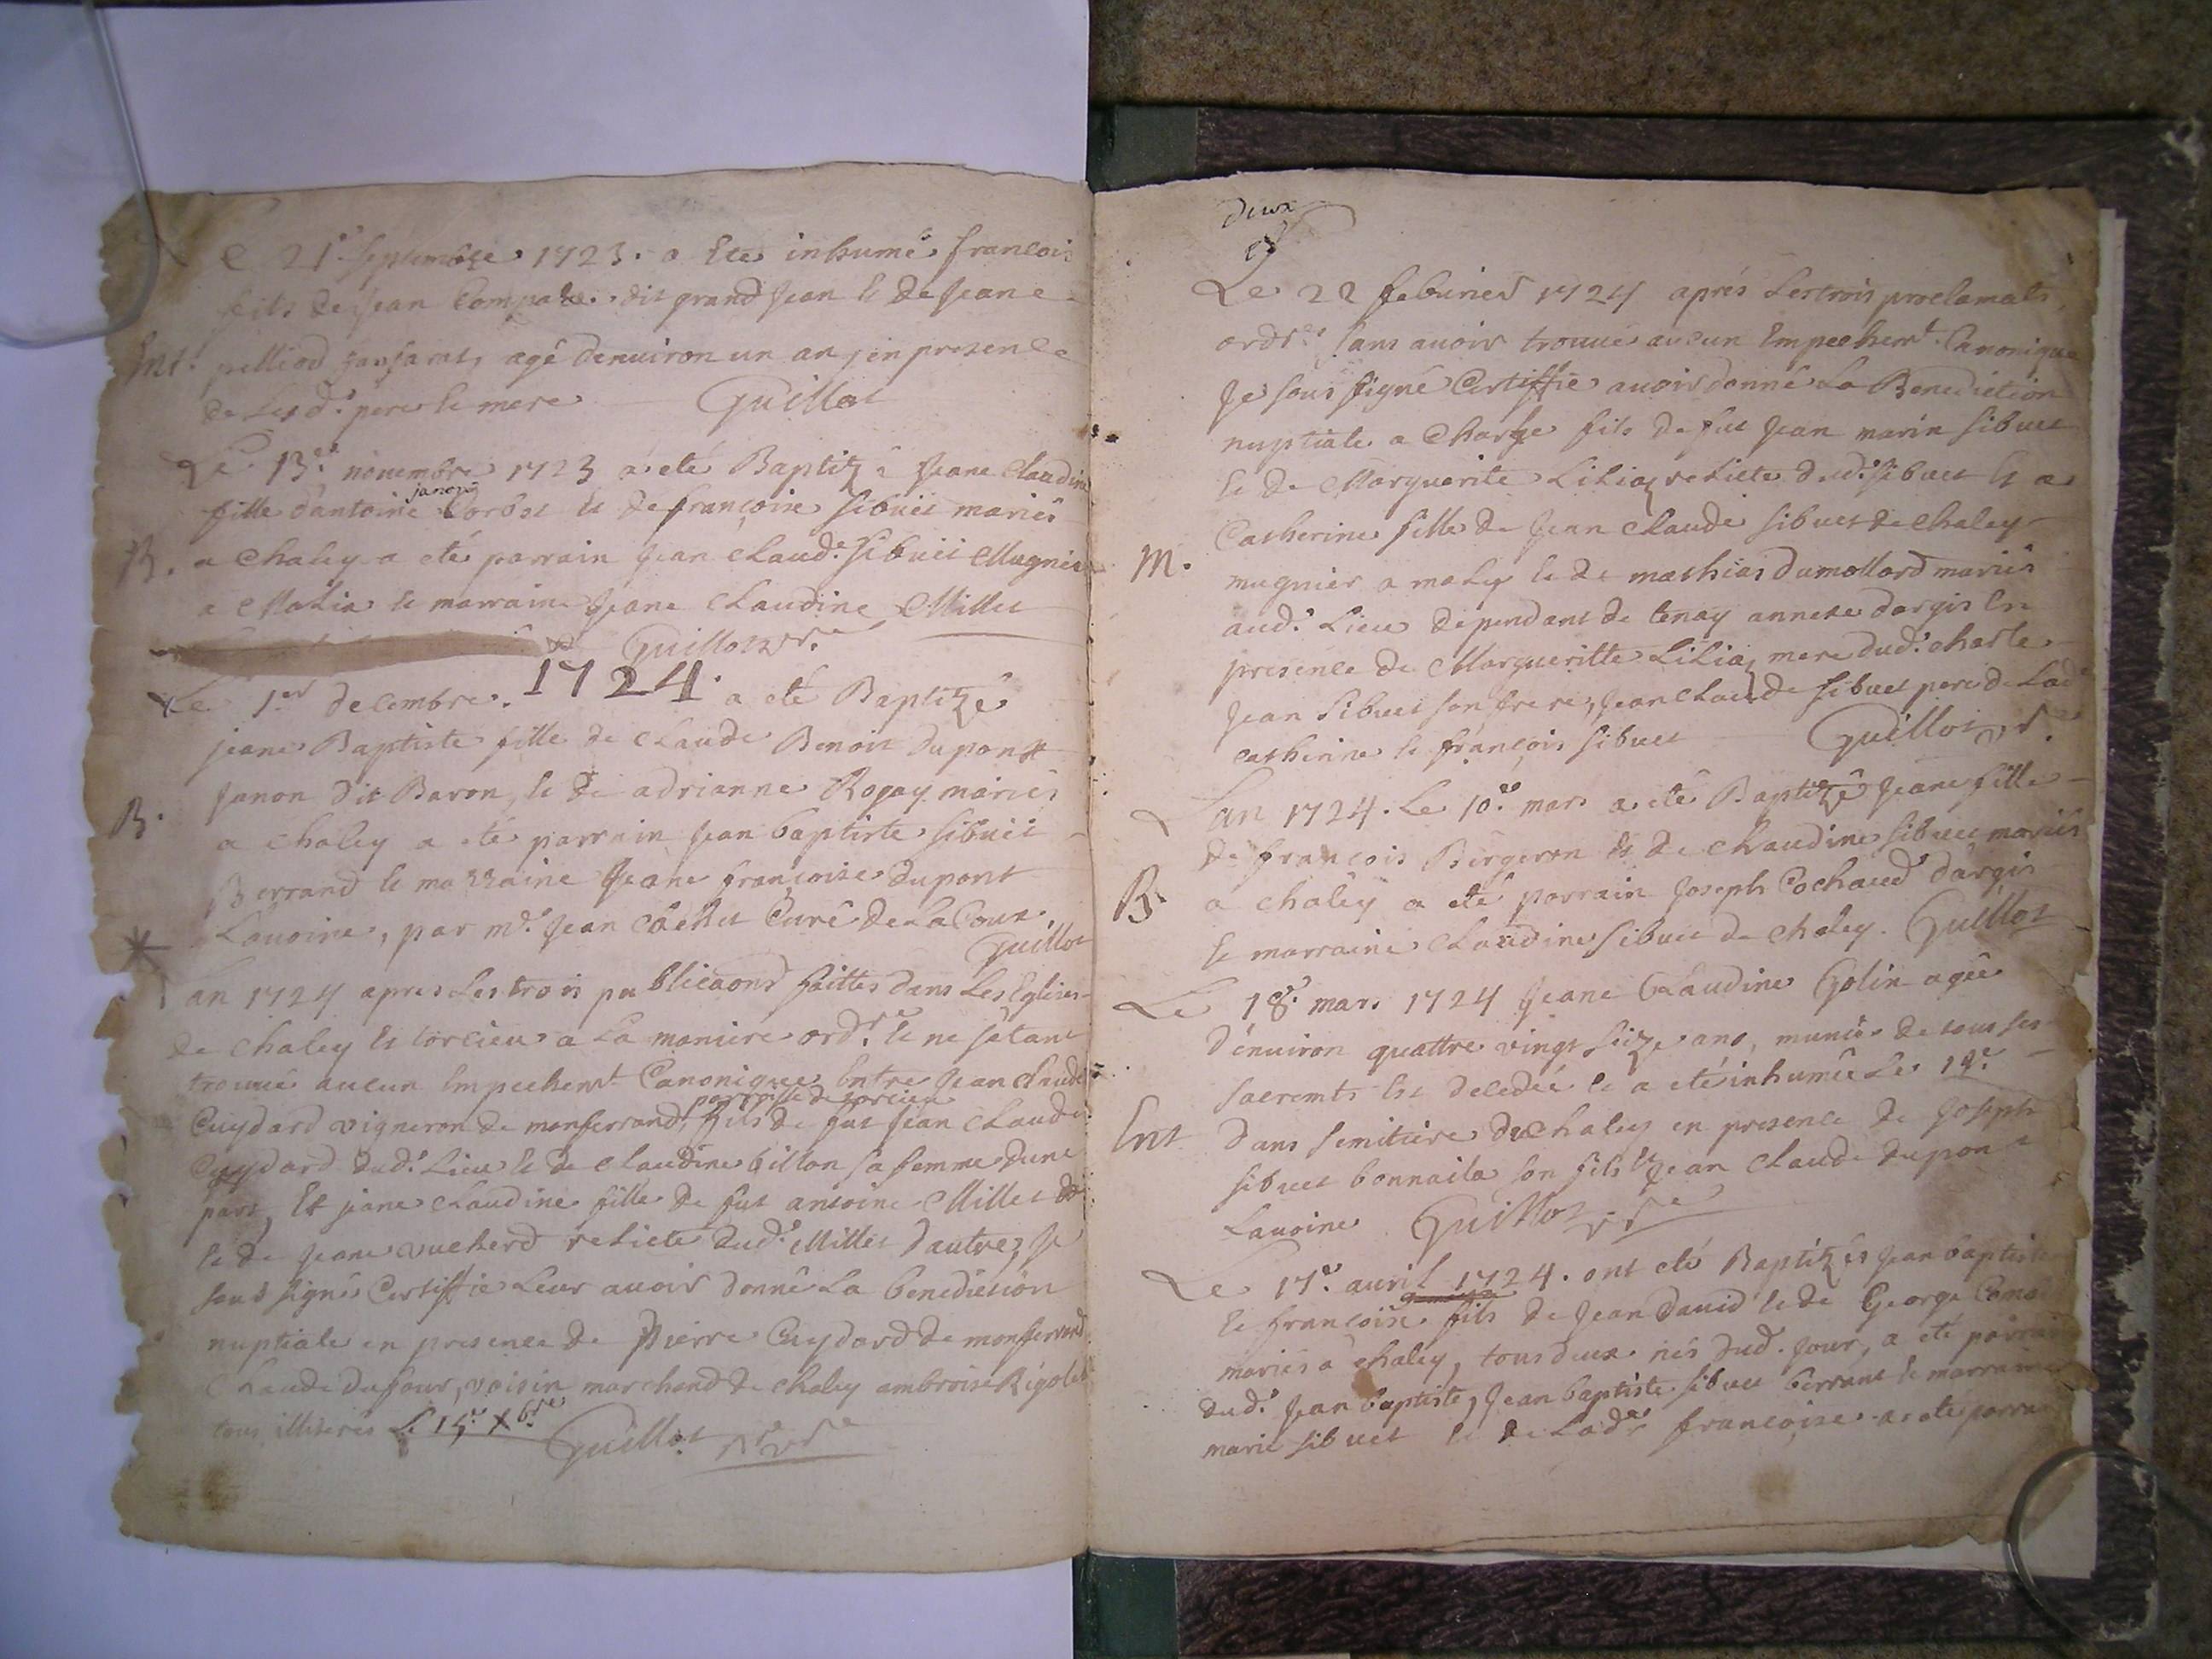 Le 21e. septembre 1723. a Ete inhumé francois
fils de Jean Compare. dit grand Jean & de Jeane
Ent. pelliod sansarat, agé denuiron un an, en presence
de Lesd. pere & mere Guillot
Le 13e. nouembre 1723 a eté Baptizé Jeane Claudine
janon
fille d'antoine Corbet & de françoise sibuet mariés
B. a Chaley a eté parrain Jean Claude. Sibuet Mugnier
a Malix & marraine Jeane Claudine Millet
Guillot vre.
1724.
Le 1er decembre. a eté Baptizé
jeane Baptiste fille de Claude Benoit Dupont
B. Janon dit Baron, & de adrianne Rogay mariés
a Chaley a eté parrain Jean baptiste sibuet
Berrand & marraine Jeane françoise dupont
Lauoine, par mr. Jean Cochet Curé de La Coux.
Guillot
Lan 1724 apres Les trois publicaons faittes dans Les Eglises
de Chaley & torcieu a La maniere ordre. & ne setant
trouué aucun Empechemt Canonique Entre Jean Claude
parroisse de torcieu
Cuydard vigneron de monferrand, fils de fut Jean Claude
Cuydard dud. Lieu & de Claudine billon sa femme dune
part, Et jeane Claudine fille de fut antoine Millet
& de Jeane vucherd relicte dud. Millet dautre, Je
sous signé Certiffie Leur auoir donné La benediction
nuptiale en presence de Pierre Cuydard de monferrand
Claude dufour, voisin marchand de Chaley ambroise Rigolet
tous illiterés Le 15e. Xbre
Guillot
Deux
Le 22 februier 1724 aprés Les trois proclamats
ordres. sans auoir trouué aucun Empechemt. Canonique
Je sous signé Certiffie auoir donné La Benediction
nuptiale a Charle fils de fut Jean marin sibuet
& de Marguerite Liliaz relicte dud. sibuet & a
Catherine fille de Jean Claude sibuet de Chaley
M. mugnier a malix & de mathias dumollard mariés
aud. Lieu dependant de tenay annexe dargis En
presence de Margueritte Lilia, mere dud. charle
Jean Sibuet son frere, Jean Claude sibuet pere de Lade
catherine & françois sibuet Guillot vre.
Lan 1724. Le 10e. mars a eté Baptizé Jeane fille
de françois Bergeron & de Claudine sibuet mariés
B. a chaley a eté parrain Joseph Cochaud dargis
& marraine Claudine sibuet de Chaley. Guillot
Le 18e. mars 1724 Jeane Claudine Golin agée
d'enuiron quattre vingt seize ans, munie de tous ses
sacremts Est decedée & a eté inhumée Le 19e.
Ent dans Semitiere de Chaley en presence de Joseph
sibuet bonnaila son fils & Jean Claude dupont
Lauoine Guillot vre
Le 17e. auril 1724. ont eté Baptizés Jean baptiste
& francoise fils de Jean Dauid & de George
mariés a Chaley, tous deux nés dud. Jour, a eté parrain
dud. Jean baptiste, Jean baptiste sibuet berrand & marraine
marie sibuet & de Lade françoise a eté parrain